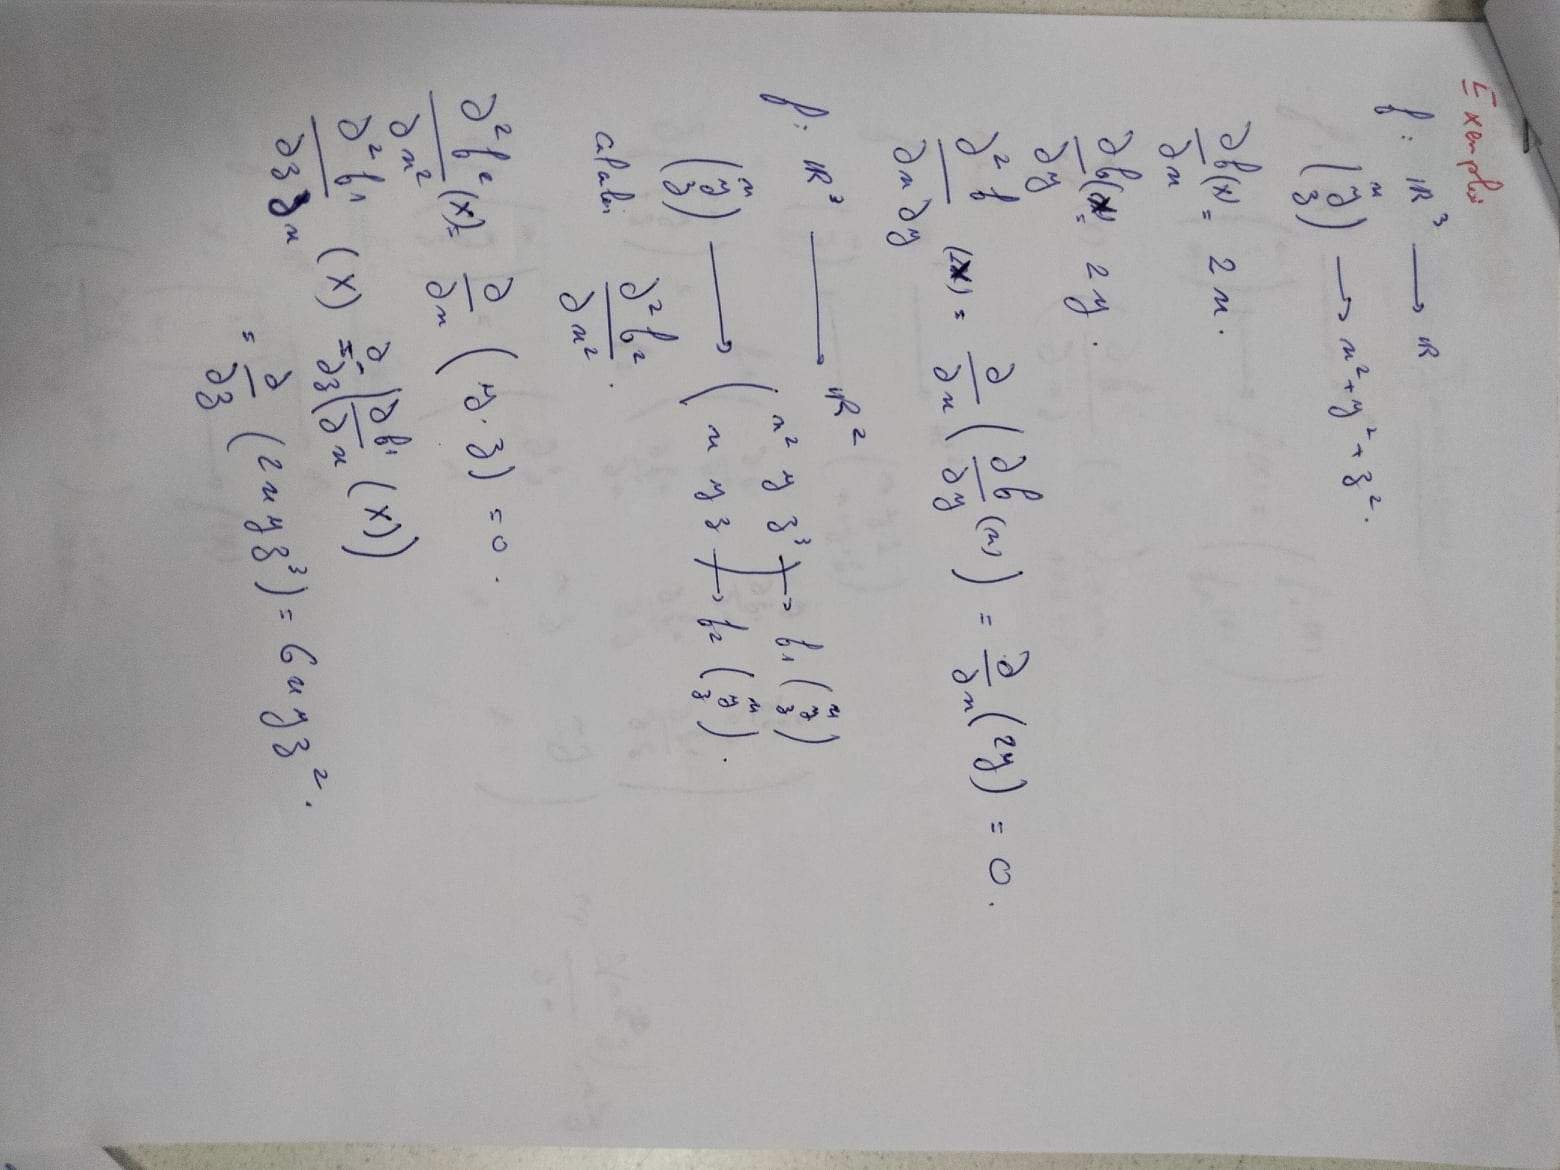 Exemples
f : ℝ³ → ℝ
(x y z) → x² + y² + z².
∂f/∂x (X) = 2x.
∂f/∂y (X) = 2y.
∂²f/∂x∂y (X) = ∂/∂x (∂f/∂y (x)) = ∂/∂x (2y) = 0.
f : ℝ³ → ℝ²
(x y z) → (x² y z³ → f₁ (x y z)
x y z) → f₂ (x y z).
calculer ∂²f₂/∂x².
∂²f₂/∂x² (X) = ∂/∂x (y·z) = 0.
∂²f₁/∂z∂x (X) = ∂/∂z (∂f₁/∂x (X))
= ∂/∂z (2xyz³) = 6xyz².